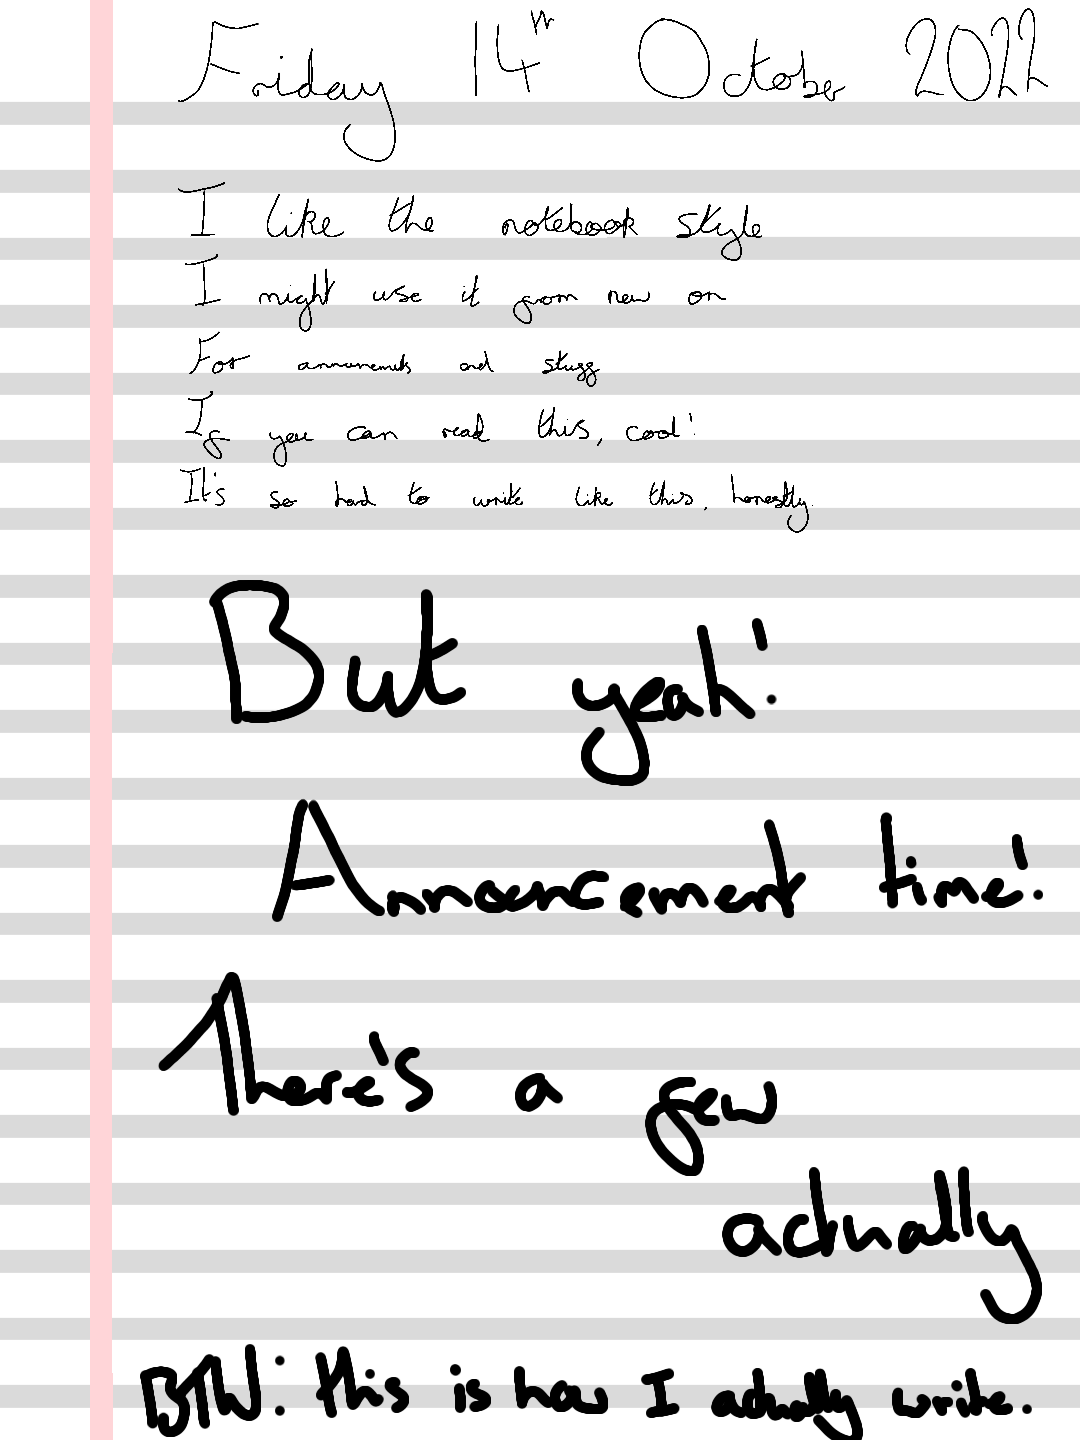 Friday 14th October 2022
I like the notebook style
I might use it from new on
For announcements and stuff
If you can read this, cool!
It's so hard to write like this, honestly.
But yeah!
Announcement time!
There's a few
actually
BTW: this is how I actually write.